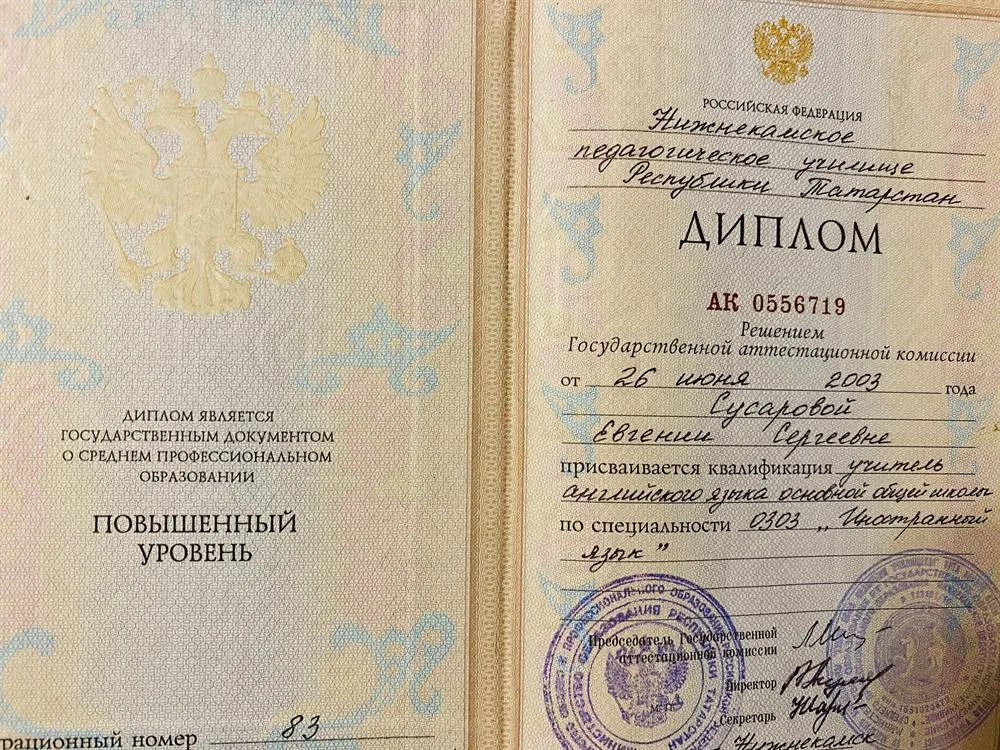 ДИПЛОМ ЯВЛЯЕТСЯ
ГОСУДАРСТВЕННЫМ ДОКУМЕНТОМ
О СРЕДНЕМ ПРОФЕССИОНАЛЬНОМ
ОБРАЗОВАНИИ
ПОВЫШЕННЫЙ
УРОВЕНЬ
рационный номер 83
РОССИЙСКАЯ ФЕДЕРАЦИЯ
Нижнекамское
педагогическое училище
Республики Татарстан
ДИПЛОМ
АК 0556719
Решением
Государственной аттестационной комиссии
от 26 июня 2003 года
Сусаровой
Евгении Сергеевне
присваивается квалификация учитель
английского языка основной общей школы
по специальности 0303 „Иностранный
язык"
Председатель Государственной
аттестационной комиссии
Директор
Секретарь
Нижнекамск